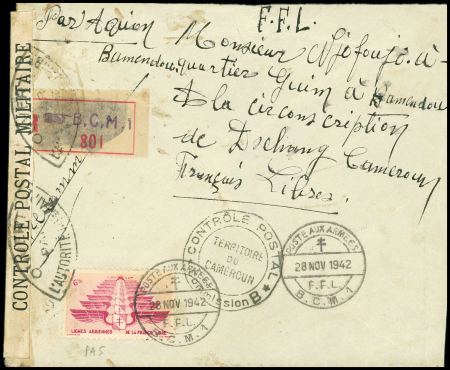 Par Avion
F. F. L.
Monsieur Njefoujo à
Bamendou, quartier Guim à Bamendou
de la circonscription
de Dschang Cameroun
Français Libres
CONTRÔLE POSTAL MILITAIRE
B.C.M.1
801
L'AUTORITÉ
CONTRÔLE POSTAL
TERRITOIRE
DU
CAMEROUN
Commission B
POSTE AUX ARMÉES
28 NOV 1942
F.F.L.
B.C.M. 1
POSTE AUX ARMÉES
28 NOV 1942
F.F.L.
B.C.M. 1
LIGNES AERIENNES DE LA FRANCE LIBRE
PA5